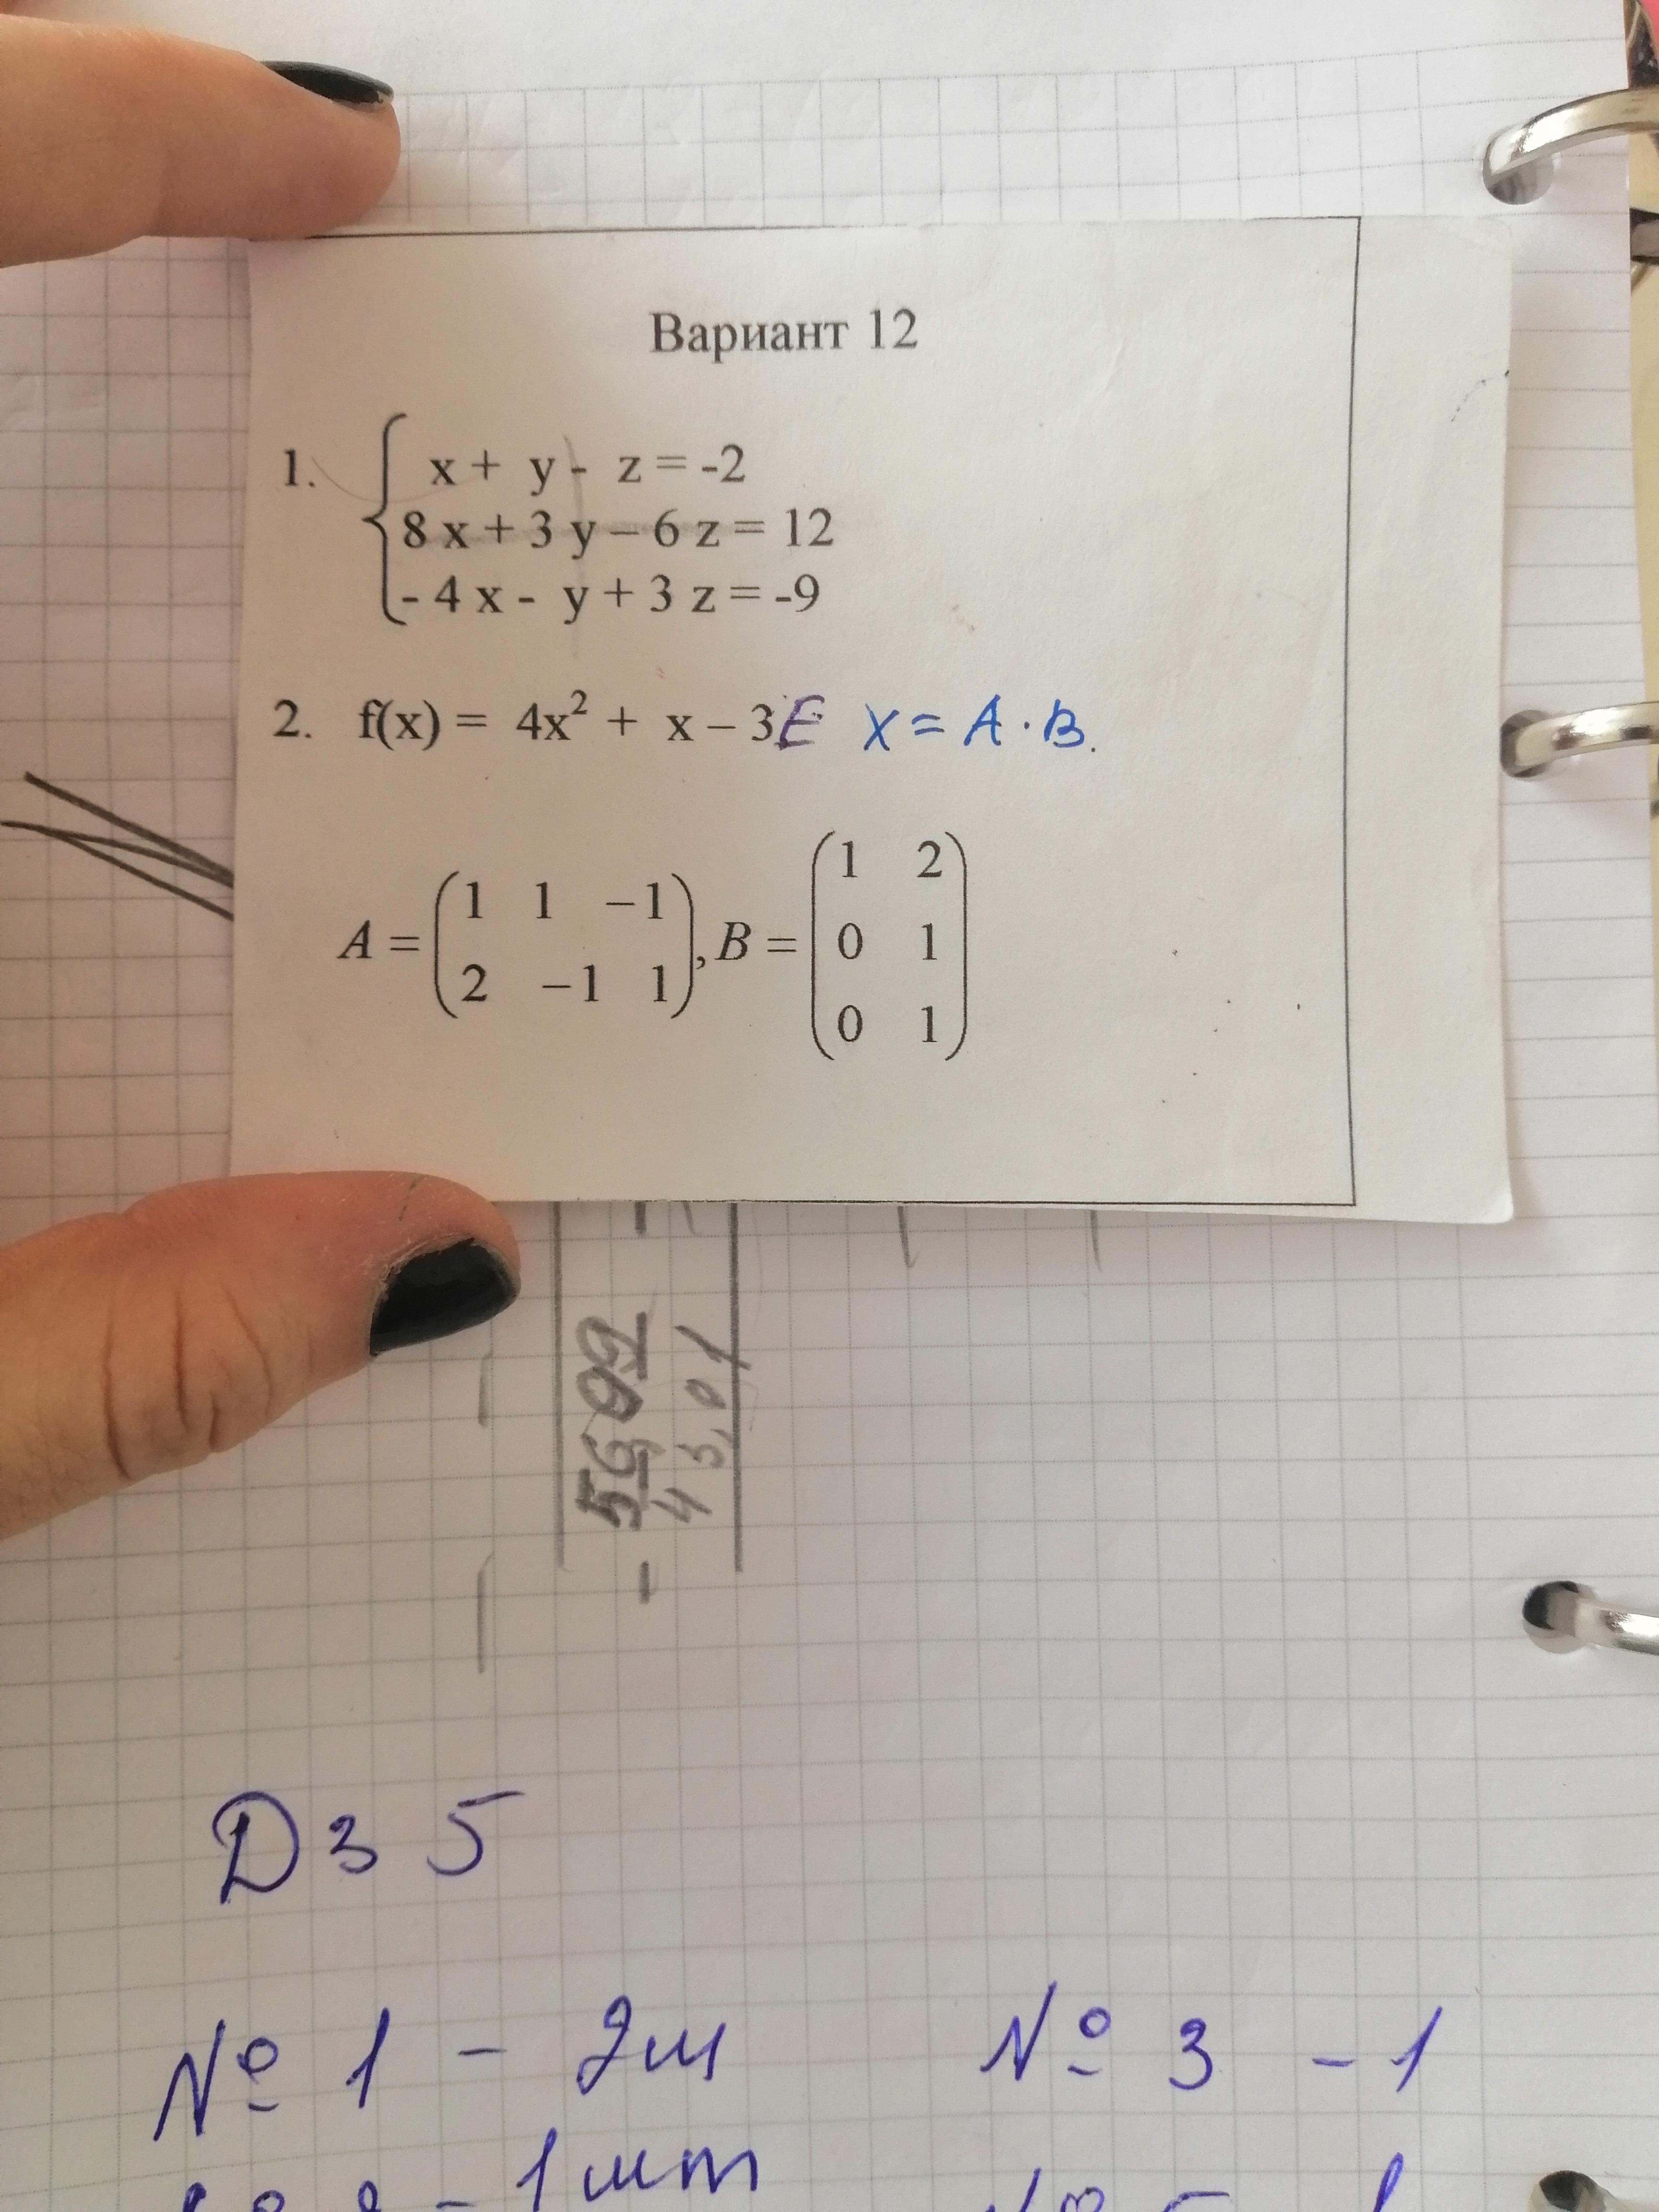 Вариант 12
1. { x + y - z = -2
8 x + 3 y – 6 z = 12
- 4 x - y + 3 z = -9
2. f(x) = 4x² + x – 3E x = A · B.
A = ( 1 1 –1
2 –1 1 ) , B = ( 1 2
0 1
0 1 )
- 56,99
43,01
Дз 5
№ 1 - 2ш № 3 - 1
- 1 шт